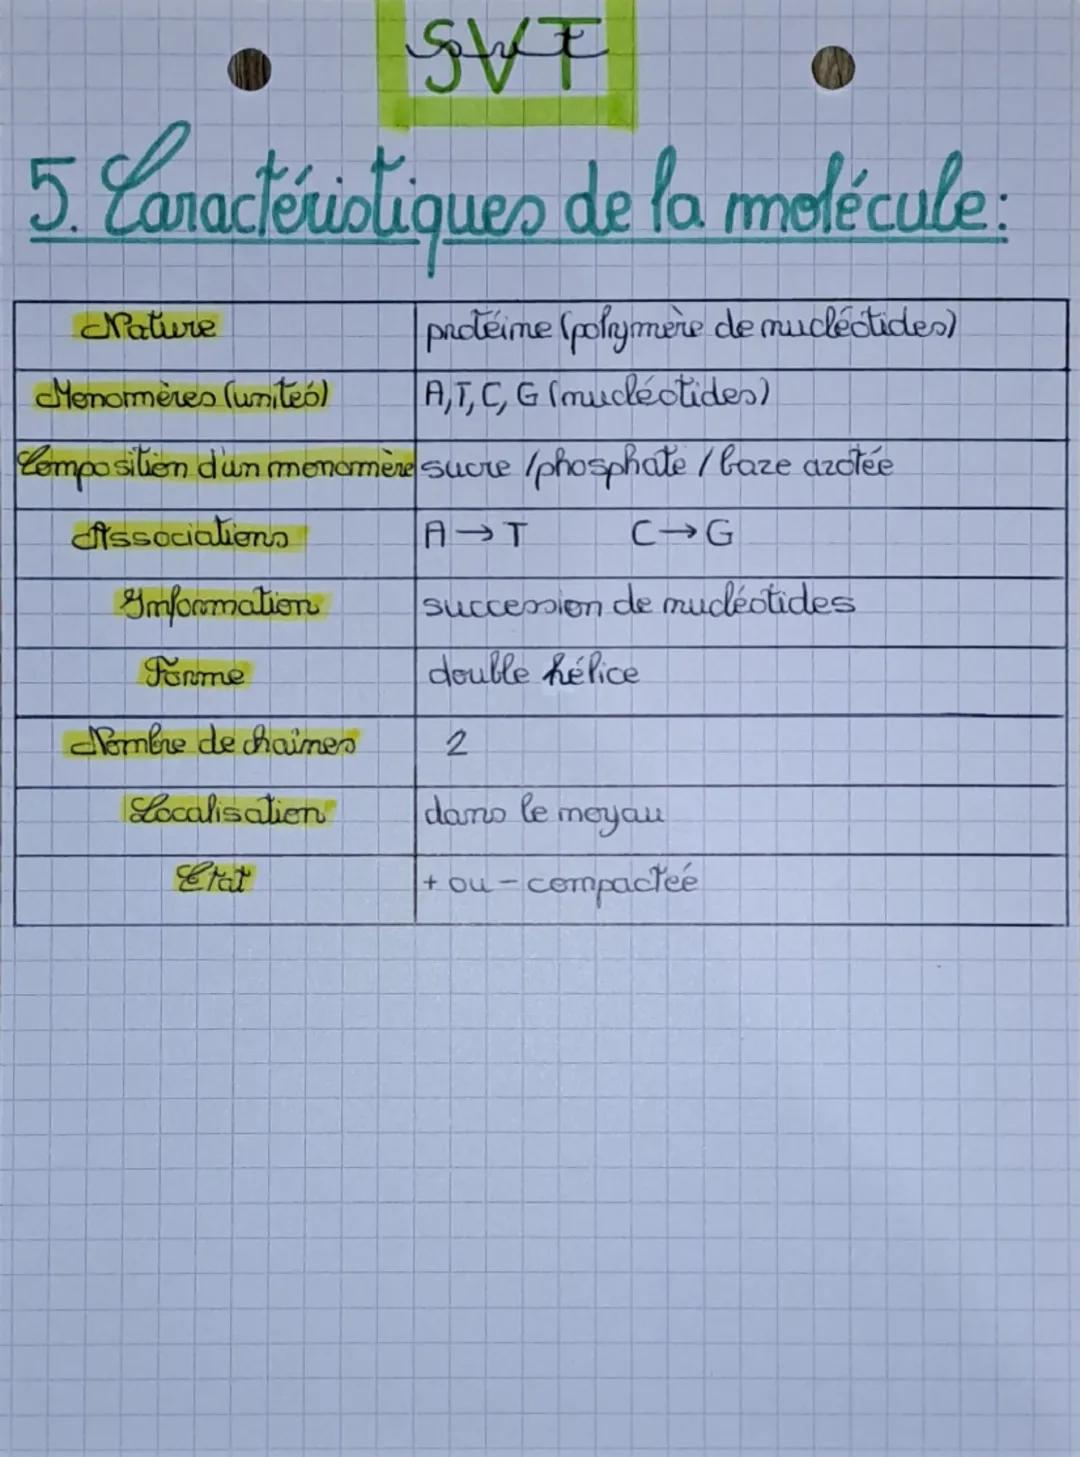 SVT
suite
5. Caractéristiques de la molécule:
Nature protéine (polymère de nucléotides)
Monomères (unités) A, T, C, G (nucléotides)
Composition d'un monomère sucre / phosphate / baze azotée
Associations A → T C → G
Information succession de nucléotides
Forme double hélice
Nombre de chaînes 2
Localisation dans le noyau
Etat + ou - compacteé